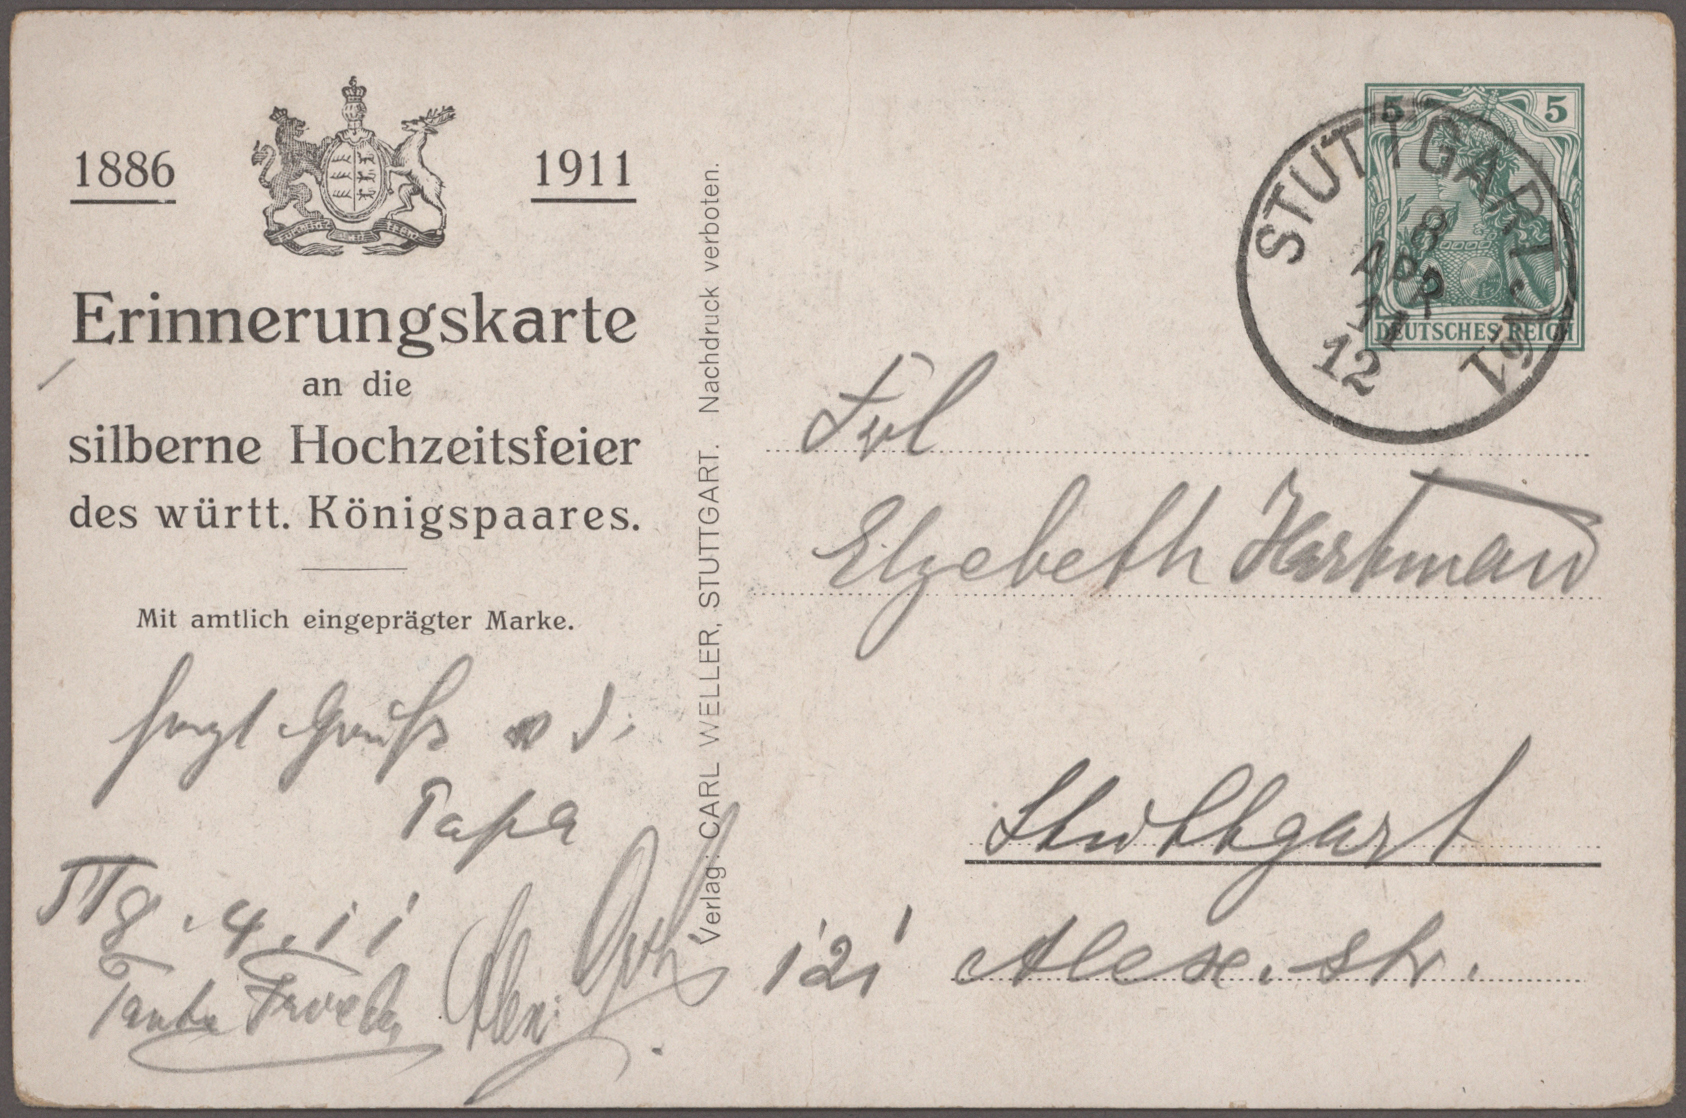 1886
1911
Erinnerungskarte
an die
silberne Hochzeitsfeier
des württ. Königspaares.
Mit amtlich eingeprägter Marke.
Verlag: CARL WELLER, STUTTGART. Nachdruck verboten.
5 5
DEUTSCHES REICH
STUTTGART
8
APR
11
12
Frl
Elzebeth Hartmann
Stuttgart
121 Alex. str.
Gruß
Papa
8.4.11
Tante